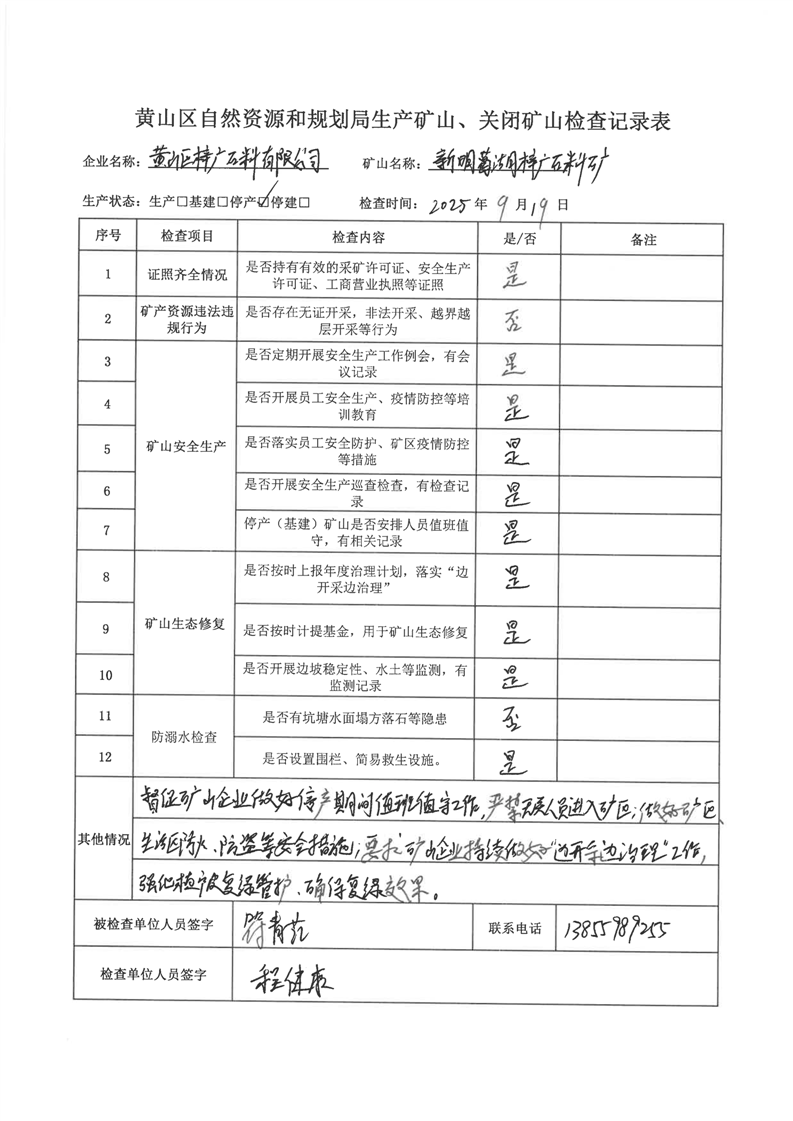 黄山区自然资源和规划局生产矿山、关闭矿山检查记录表
企业名称：黄山区梓广石料有限公司 矿山名称：新明葛湖梓广石料矿
生产状态：生产□基建□停产☑停建□ 检查时间：2025年9月19日
序号 检查项目 检查内容 是/否 备注
1 证照齐全情况 是否持有有效的采矿许可证、安全生产
许可证、工商营业执照等证照 是
2 矿产资源违法违
规行为 是否存在无证开采，非法开采、越界越
层开采等行为 否
3 是否定期开展安全生产工作例会，有会
议记录 是
4 是否开展员工安全生产、疫情防控等培
训教育 是
矿山安全生产
5 是否落实员工安全防护、矿区疫情防控
等措施 是
6 是否开展安全生产巡查检查，有检查记
录 是
7 停产（基建）矿山是否安排人员值班值
守，有相关记录 是
8 是否按时上报年度治理计划，落实“边
开采边治理” 是
矿山生态修复
9 是否按时计提基金，用于矿山生态修复 是
10 是否开展边坡稳定性、水土等监测，有
监测记录 是
11 是否有坑塘水面塌方落石等隐患 否
防溺水检查
12 是否设置围栏、简易救生设施。 是
其他情况
督促矿山企业做好停产期间值班值守工作，严禁无关人员进入矿区；做好矿区、
生活区防火、防盗等安全措施；要求矿山企业持续做好“边开采边治理”工作，
强化植被复绿管护、确保复绿效果。
被检查单位人员签字 联系电话 13855989255
检查单位人员签字 程健康